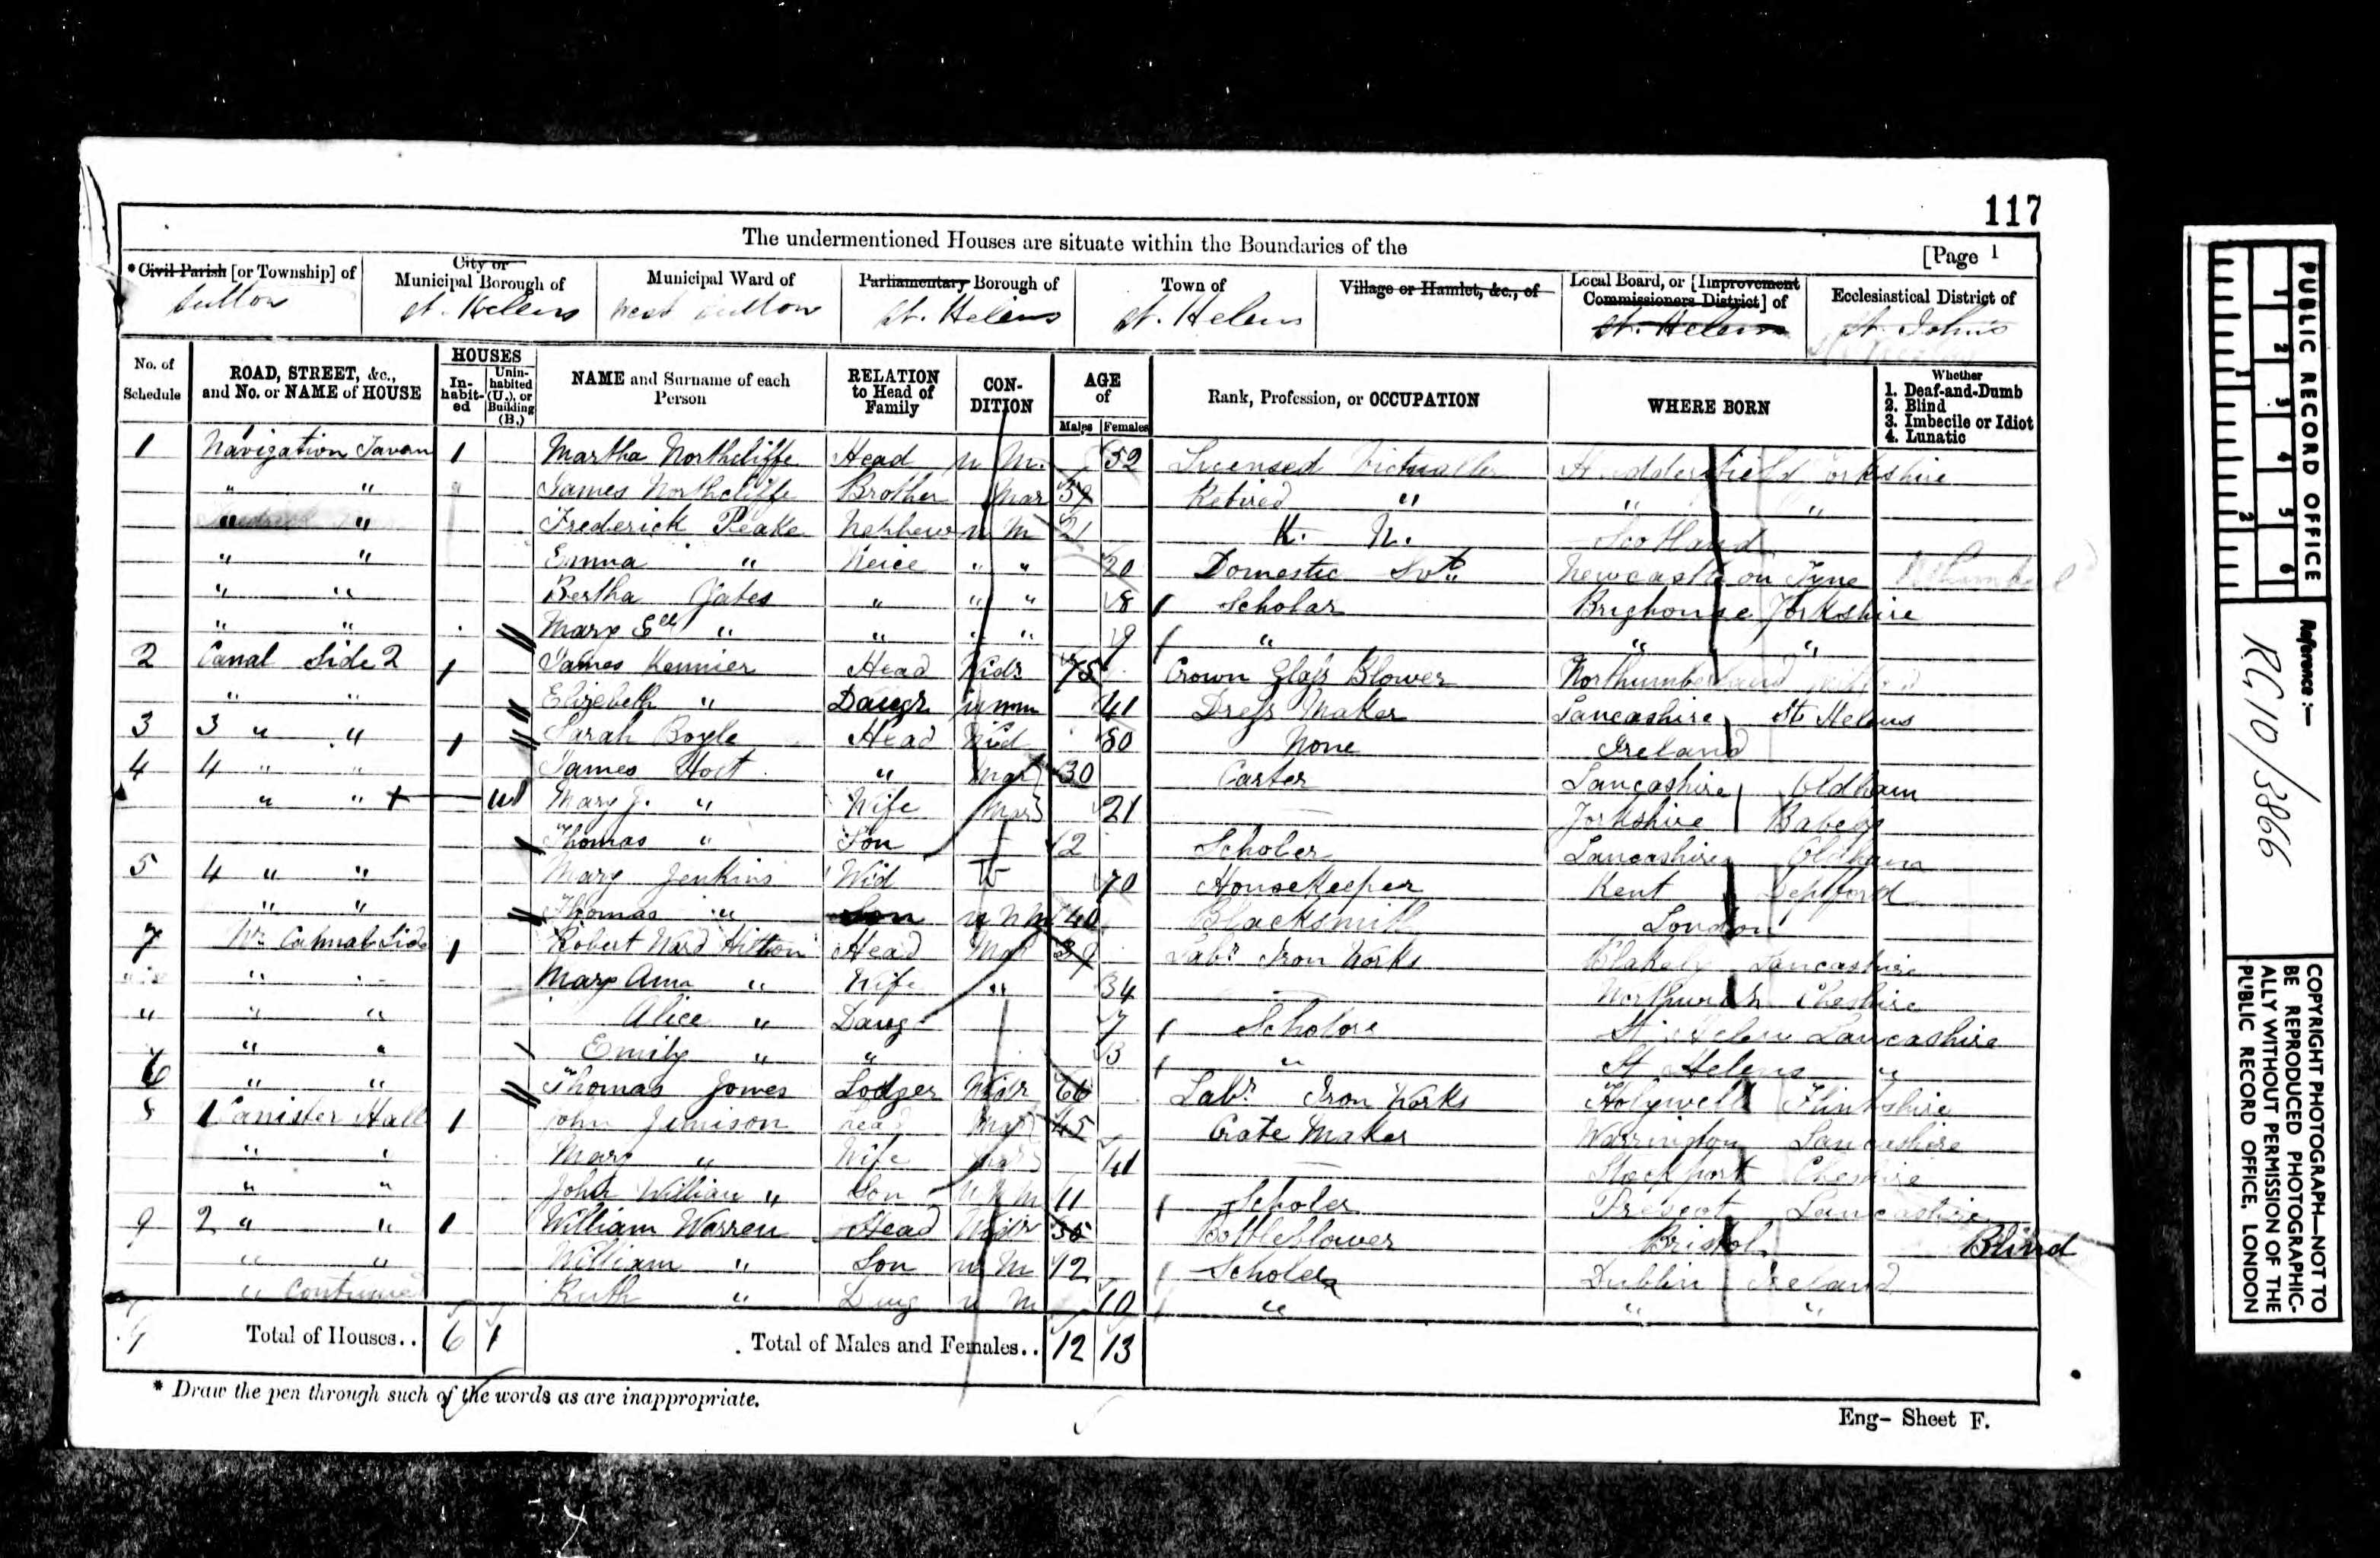 117
The undermentioned Houses are situate within the Boundaries of the
[Page 1
*Civil Parish [or Township] of
Sutton
City or Municipal Borough of
St. Helens
Municipal Ward of
West Sutton
Parliamentary Borough of
St. Helens
Town of
St. Helens
Village or Hamlet, &c., of
Local Board, or [Improvement Commissioners District] of
St. Helens
Ecclesiastical District of
St. Johns
No. of Schedule
ROAD, STREET, &c., and No. or NAME of HOUSE
HOUSES
In-habit-ed
Unin-habited (U.), or Building (B.)
NAME and Surname of each Person
RELATION to Head of Family
CON-DITION
AGE of
Males
Females
Rank, Profession, or OCCUPATION
WHERE BORN
Whether
1. Deaf-and-Dumb
2. Blind
3. Imbecile or Idiot
4. Lunatic
1 Navigation Tavern 1 Martha Northcliffe Head u M. 52 Licensed Victualler Huddersfield Yorkshire
" " James Northcliffe Brother Mar 59 Retired " " "
" " Frederick Peake Nephew u M 21 K. N. Scotland
" " Emma " Neice " " 20 Domestic Svt Newcastle on Tyne
" " Bertha Yates " " " 8 Scholar Brighouse Yorkshire
" " Mary Ell " " " " 9 " " "
2 Canal Side 2 1 James Kennier Head Widr 75 Crown Glass Blower Northumberland
" " Elizebeth " Daugr unm 41 Dress Maker Lancashire St Helens
3 3 " " 1 Sarah Boyle Head Wid 80 None Ireland
4 4 " " James Holt " Mar 30 Carter Lancashire Oldham
" " + U Mary J. " Wife Mar 21 Yorkshire
Thomas " Son 2 Scholer Lancashire Oldham
5 4 " " Mary Jenkins Wid W 70 Housekeeper Kent Deptford
" " Thomas " Son 40 Blacksmith London
7 Canal Side 1 Robert Ward Hilton Head Mar 39 Labr Iron Works Blakely Lancashire
" " Mary Ann " Wife " 34 Northwich Cheshire
" " " Alice " Daug 7 Scholore St Helens Lancashire
" " Emily " " 3 " St Helens "
6 " " Thomas Jones Lodger Widr 66 Labr Iron Works Holywell Flintshire
8 1 Canister Hall 1 John Jemison Head Mar 45 Crate Maker Warrington Lancashire
" " Mary " Wife Mar 41 Stockport Cheshire
" " John William " Son 11 Scholer Prescot Lancashire
9 2 " " 1 William Warren Head Widr 36 Bottleblower Bristol Blind
" " William " Son u M 12 Scholer Dublin Ireland
" Ruth " Daug u M 10 " " "
9 Total of Houses.. 6 1 Total of Males and Females.. 12 13
* Draw the pen through such of the words as are inappropriate.
Eng- Sheet F.
PUBLIC RECORD OFFICE
1 2 3 4 5 6
1 2
Reference :-
RG 10/3866
COPYRIGHT PHOTOGRAPH—NOT TO
BE REPRODUCED PHOTOGRAPHIC-
ALLY WITHOUT PERMISSION OF THE
PUBLIC RECORD OFFICE, LONDON